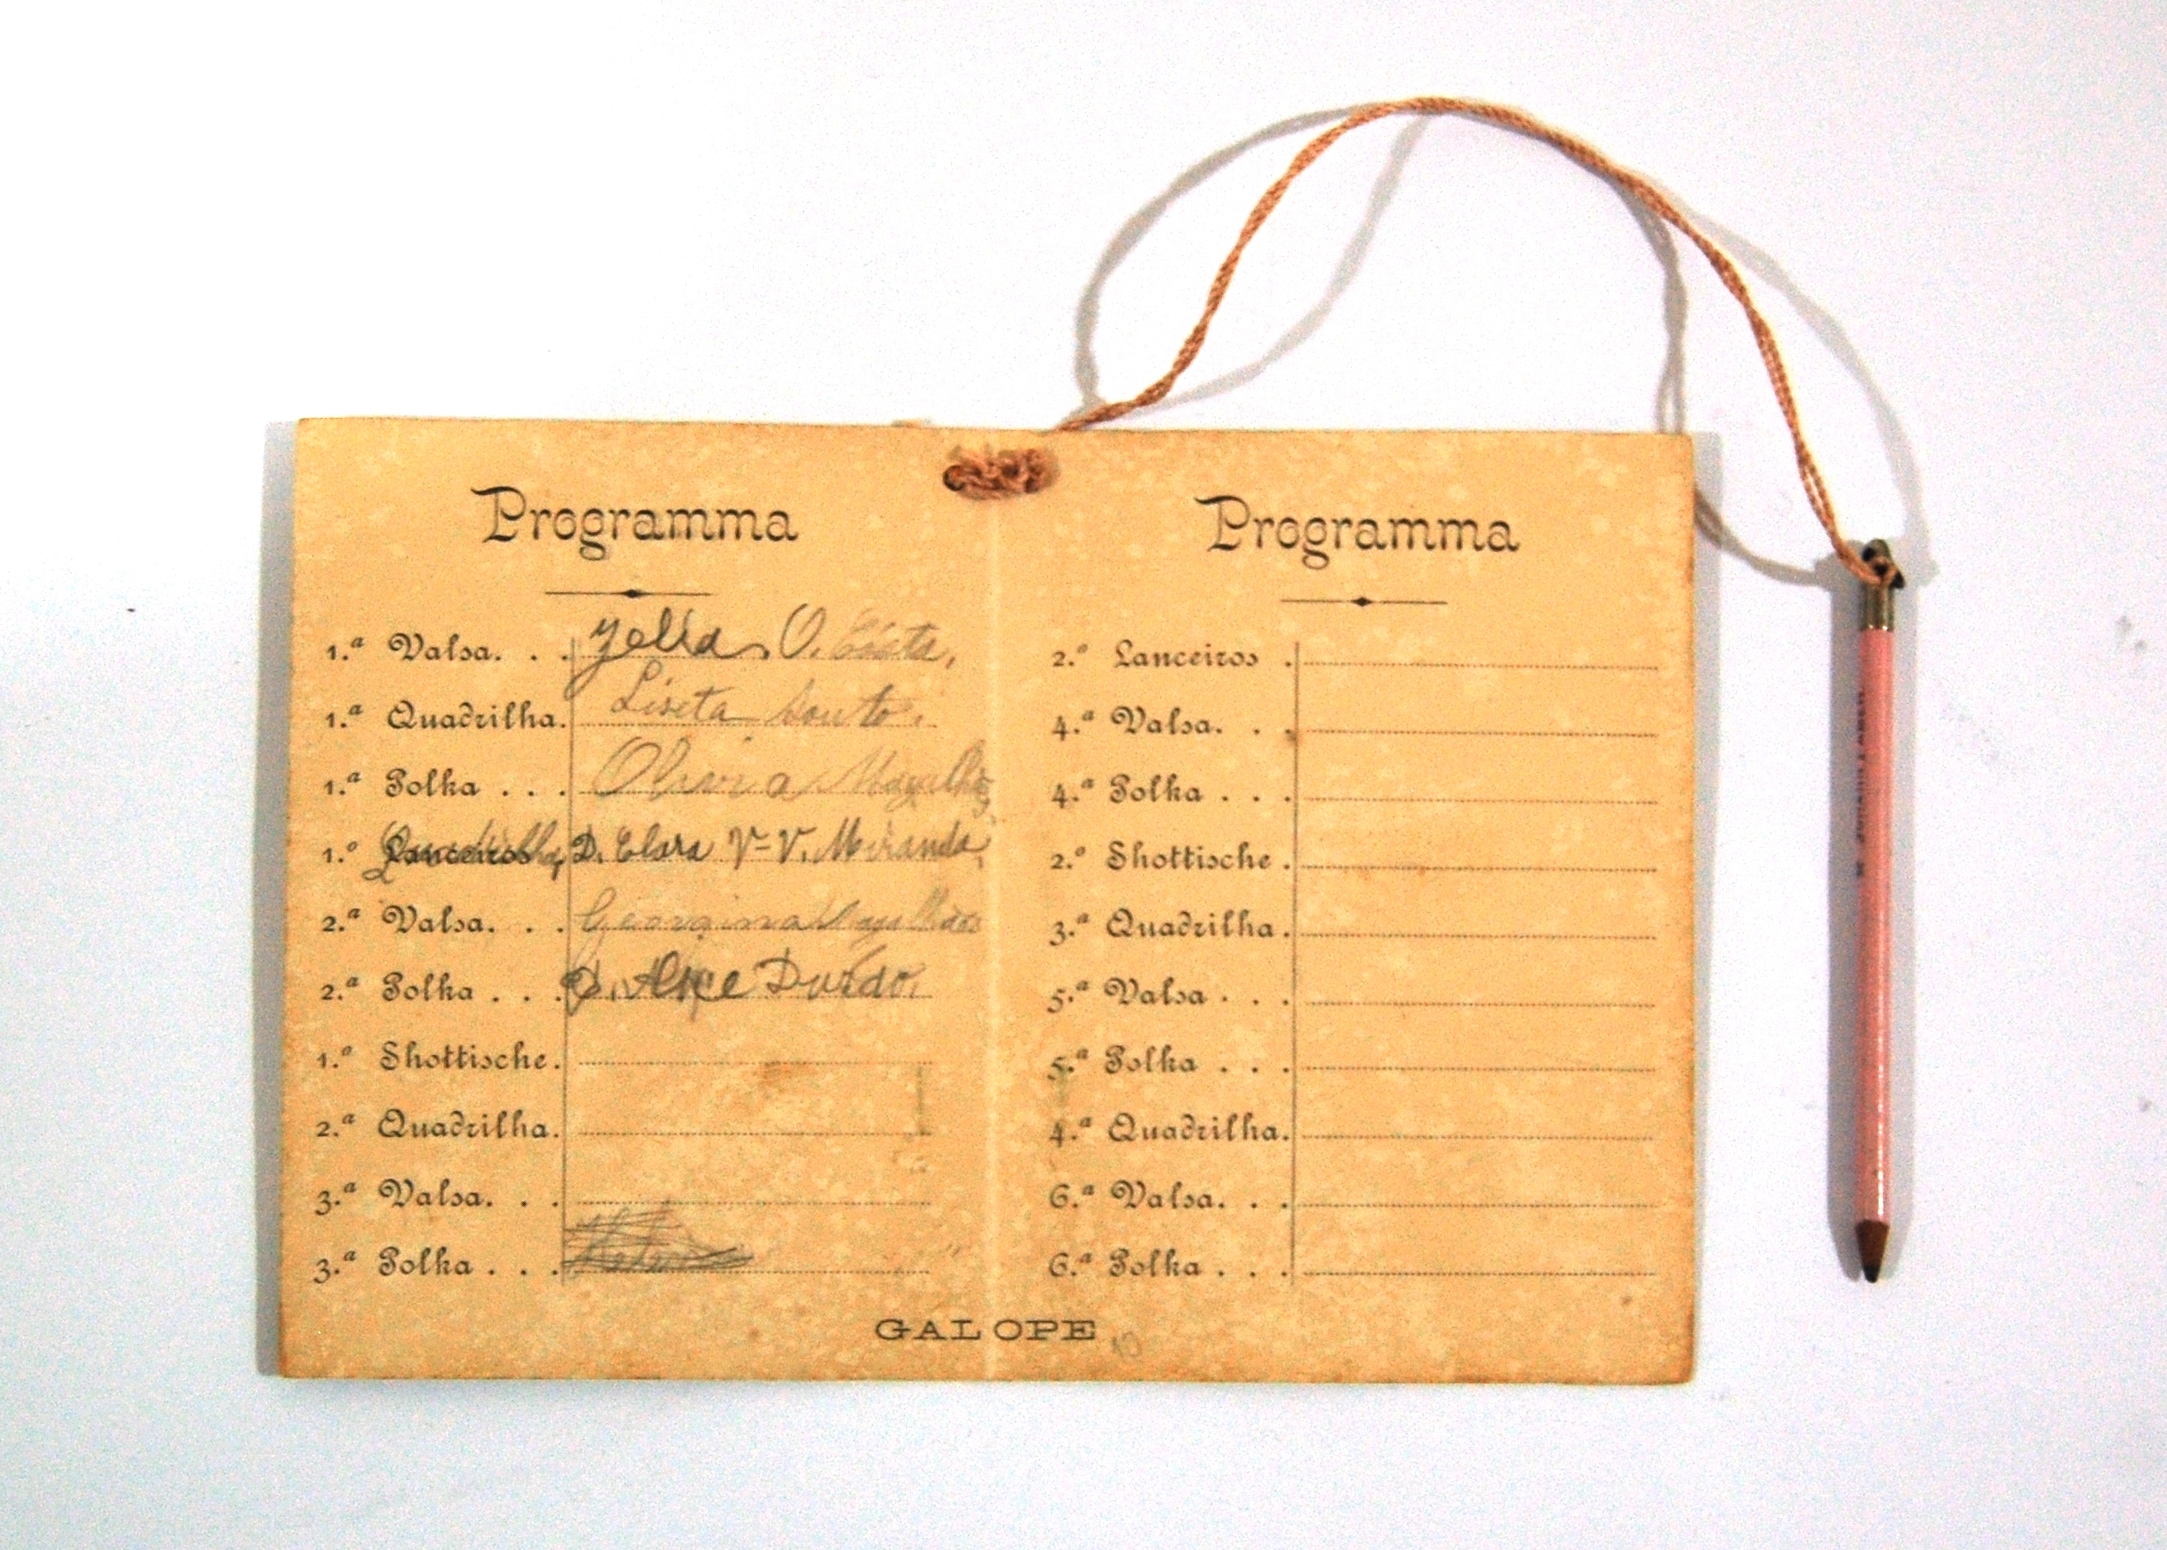 Programma
1.ª Valsa. . . O. Costa.
1.ª Quadrilha. Liseta Souto.
1.ª Polka . . . Olivia Magalhães
1.º Lanceiros D. Clara V-V. Miranda
2.ª Valsa. . . Georgina Magalhães
2.ª Polka . . . D. Alice Durão.
1.º Shottische.
2.ª Quadrilha.
3.ª Valsa. . .
3.ª Polka . . .
Programma
2.º Lanceiros .
4.ª Valsa. . .
4.ª Polka . . .
2.º Shottische .
3.ª Quadrilha.
5.ª Valsa . . .
5.ª Polka . . .
4.ª Quadrilha.
6.ª Valsa. . .
6.ª Polka . . .
GALOPE